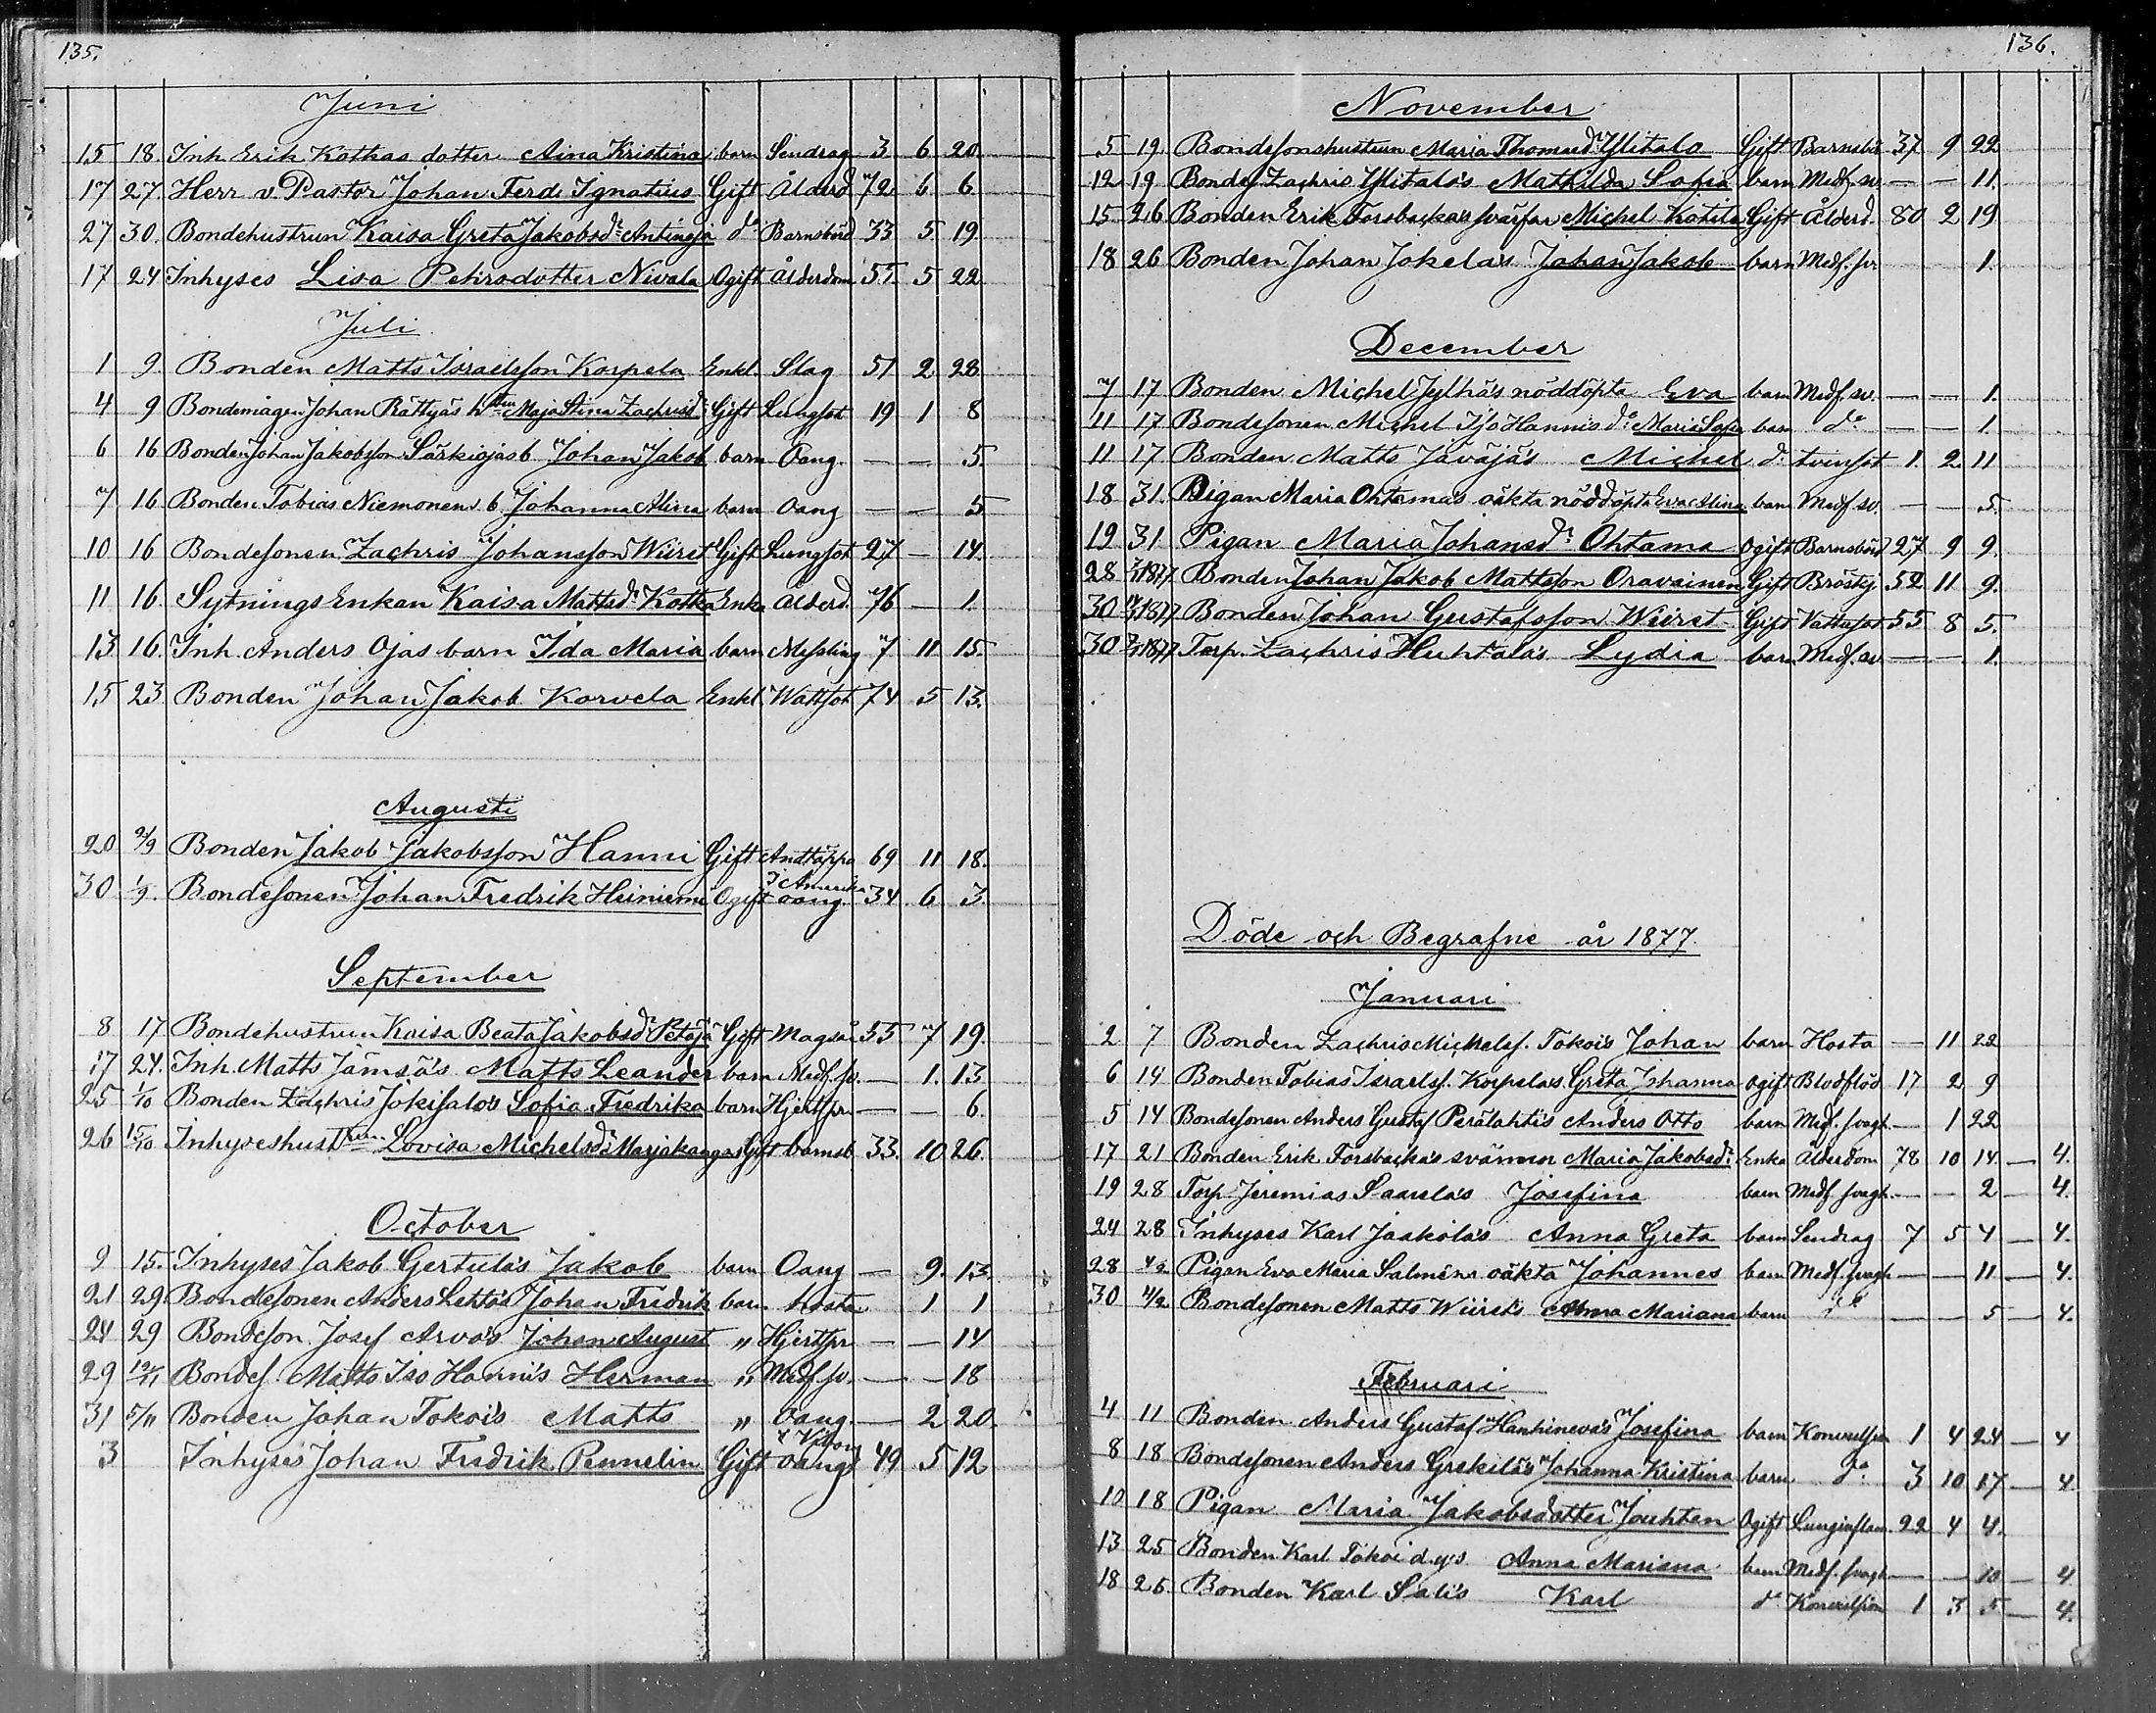 135.
Juni
15 18 Inh. Erik Kotkas dotter Aina Kristina barn Sendrag 3 6 20
17 27. Herr v. Pastor Johan Ferd. Ignatius Gift Ålderd 72 6 6
27 30. Bondehustrun Kaisa Greta Jakobsdr Antinoja do Barnsbörd 33 5 19
17 24 Inhyses Lisa Pehrsdotter Nivala Ogift Ålderdom 55 5 22
Juli
1 9. Bonden Matts Israelsson Korpela Enkl. Slag 51 2 28
4 9 Bondemågen Johan Rättyäs hstru Maja Stina Zachrisdr Gift Lungsot 19 1 8
6 16 Bonden Johan Jakobsson Särkiojas b. Johan Jakob barn Oang. — — 5.
7 16 Bonden Tobias Niemonens b. Johanna Alina barn Oang — — 5
10 16 Bondesonen Zachris Johansson Wiiret Gift Lungsot 27 — 14.
11 16. Sytnings Enkan Kaisa Mattsdr Kotka Enka Ålderd. 76 — 1.
13 16. Inh. Anders Ojas barn Ida Maria barn Messling 7 11 15.
15 23 Bonden Johan Jakob Korvela Enkl. Wattsot 74 5 13.
Augusti
20 2/9 Bonden Jakob Jakobsson Hanni Gift Andtäppa 69 11 18.
30 1/9. Bondesonen Johan Fredrik Heiniemi Ogift I Amerika oang. 34 6 3.
September
8 17 Bondehustrun Kaisa Beata Jakobsdr Petäjä Gift Magsår 55 7 19.
17 24. Inh. Matts Jämsä's Matts Leander barn Medf. sv. — 1. 13
25 1/10 Bonden Zachris Jokisalos Sofia Fredrika barn Hjertspr — — 6.
26 15/10 Inhyseshustrun Lovisa Michelsdr Marjakangas Gift barnsb 33. 10 26.
October
9 15. Inhyses Jakob Gertula's Jakob barn Oang — 9. 13.
21 29. Bondesonen Anders Lehto's Johan Fredrik barn hosta 1 1
24 29 Bondeson Josef Arvo's Johan August " Hjertspr — — 14
29 12/11 Bondes. Matts Iso Hanni's Herman " Medf sv. — — 18
31 5/11 Bonden Johan Tokois Matts " Oang. — 2 20.
3 Inhyses Johan Fredrik Pennelin Gift oang 49 5 12
136.
November
5 19. Bondesonshustrun Maria Thomasdr Ylitalo Gift Barnsbö 37 9 22
12 19 Bondes. Zachris Ylitalo's Mathilda Sofia barn Medf. sv. — — 11.
15 26 Bonden Erik Forsbackas svärfar Michel Kotila Gift Ålderd. 80 2 19
18 26 Bonden Johan Jokela's Johan Jakob barn Medf. sv 1.
December
7 17 Bonden Michel Jylhä's nöddöpta Eva barn Medf. sv. — — 1.
11 17 Bondesonen Michel Iso Hannis do Maria Sofia barn do — — 1.
11 17 Bonden Matts Jäväjäs Michel do tvinsot 1. 2 11
18 31. Pigan Maria Ohtamas oäkta nöddöpta Eva Alina barn Medf. sv. — — 5.
19 31 Pigan Maria Johansdr Ohtama Ogift Barnsbörd 27 9 9.
28 1877 Bonden Johan Jakob Mattsson Oravainen Gift Bröstsj. 52 11 9.
30 1877 Bonden Johan Gustafsson Wiiret Gift Vattusot 55 8 5.
30 1877 Torp. Zachris Huhtala's Lydia barn Medf. sv — — 1.
Döde och Begrafne år 1877.
Januari
2 7 Bonden Zachris Michelss. Tokois Johan barn Hosta — 11 22
6 14 Bonden Tobias Israelss. Korpelas Greta Johanna Ogift Blodflöd 17 2 9
5 14 Bondesonen Anders Gustaf Perälahtis Anders Otto barn Med. svagh. — 1 22
17 21 Bonden Erik Forsbacka's svärmor Maria Jakobsdr Enka Ålderdom 78 10 14. — 4.
19 28 Torp. Jeremias Saarela's Josefina barn Medf svagh — — 2 — 4.
24 28 Inhyses Karl Jaakola's Anna Greta barn Sendrag 7 5 4 — 4.
28 4/2. Pigan Eva Maria Salmèns oäkta Johannes barn Medf. svagh — — 11 — 4.
30 4/2 Bondesonen Matts Wiirets Anna Mariana barn do — — 5 — 4.
Februari
4 11 Bonden Anders Gustaf Hanhineva's Josefina barn Konvulsion 1 4 24 — 4
8 18 Bondesonen Anders Grekilä's Johanna Kristina barn do 3 10 17 — 4.
10 18 Pigan Maria Jakobsdotter Jouhten Ogift Lunginflam 22 4 4.
13 25 Bonden Karl Tokoi d.y:s Anna Mariana barn Medf. svagh — — 10 — 4
18 25 Bonden Karl Salis Karl do Konvulsion 1 3 5 — 4.